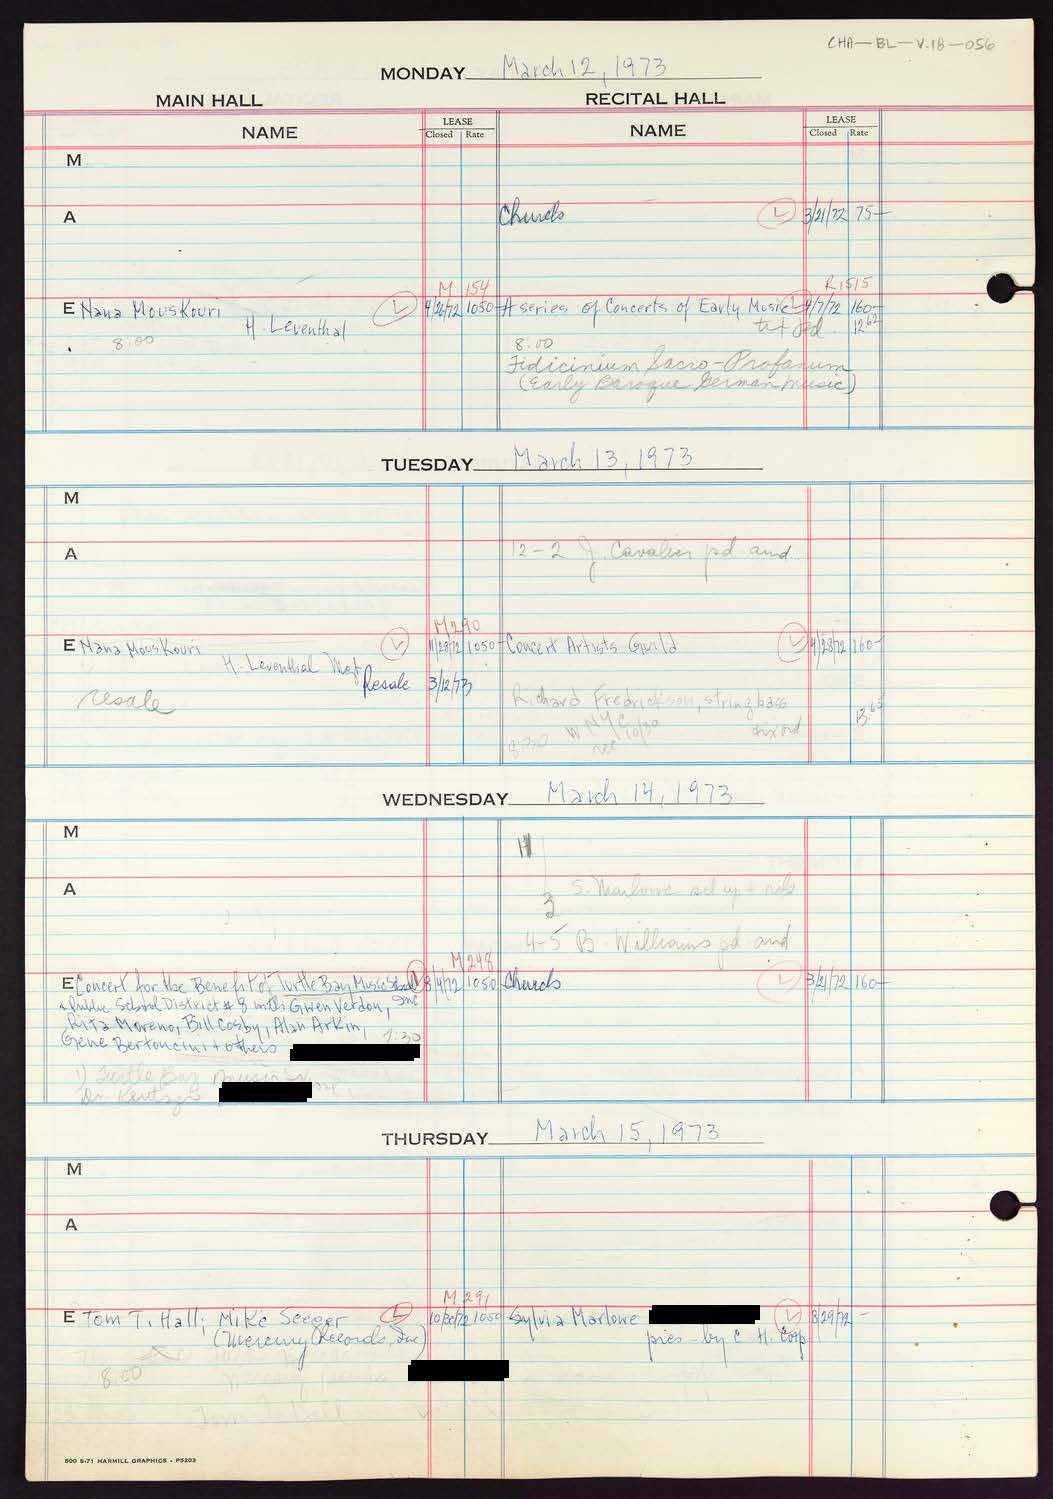 CHA-BL-V.18-056
MONDAY March 12, 1973
MAIN HALL
RECITAL HALL
NAME
LEASE
Closed Rate
NAME
LEASE
Closed Rate
M
A
Church L 3/21/72 75-
M 154
R1515
E Nana Mouskouri L 4/26/72 1050-
A series of Concerts of Early Music L 4/7/72 160-
H. Leventhal
8:00
12.62
8:00
Fidicinium Sacro-Profanum
(Early Baroque German music)
TUESDAY March 13, 1973
M
A
12-2 J. Cavalier pd and
M290
E Nana Mouskouri L 11/28/72 1050-
Concert Artists Guild L 4/28/72 160-
H. Leventhal Mgt
Resale 3/12/73
resale
Richard Fredrickson, string bass
13.63
8:30 WNYC 10/30
rec
WEDNESDAY March 14, 1973
M
11
A
3
S. Marlowe set up +
4-5 B. Williams pd and
M248
E Concert for the Benefit of Turtle Bay Music School L 8/4/72 1050
Church L 3/21/72 160-
& Public School District # 8 with Gwen Verdon, Inc
Rita Moreno, Bill Cosby, Alan Arkin,
Gene Bertoncini + others 7:30
1) Turtle Bay Music
Dr.
THURSDAY March 15, 1973
M
A
M 291
E Tom T. Hall; Mike Seeger L 10/30/72 1050
Sylvia Marlowe L 8/29/72 -
(Mercury Records, Inc)
pres-by C. H. Corp
8:00
Tom T. Hall
500 8-71 HARMILL GRAPHICS - P5203